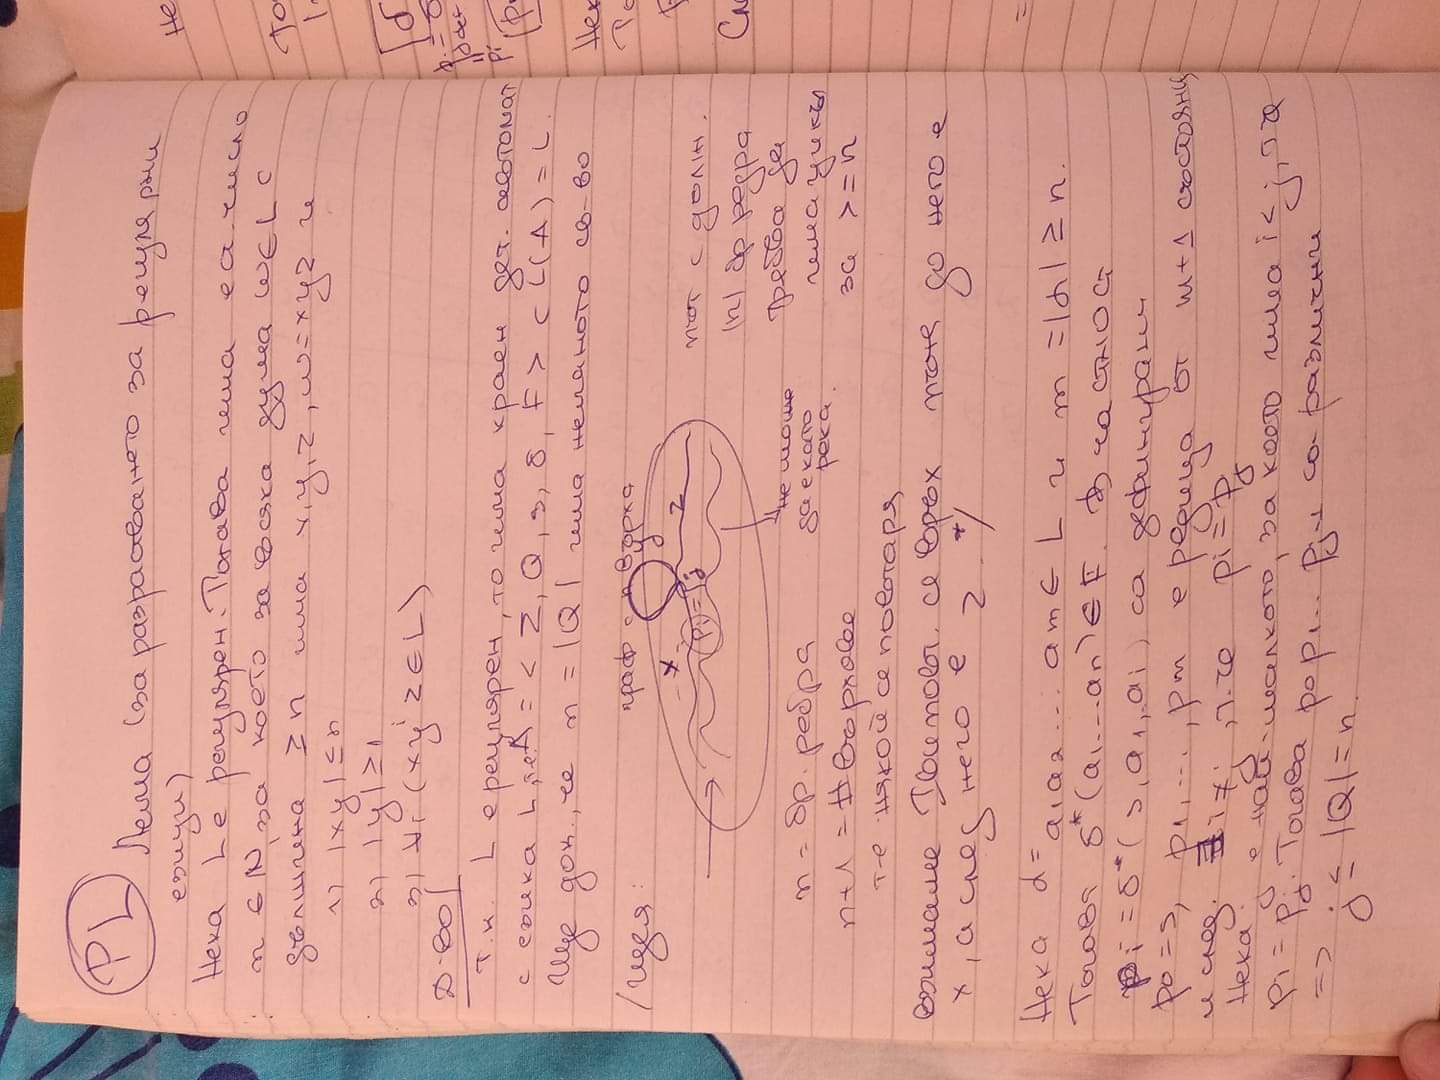 PL
Лема (за разрастването за регулярни
езици)
Нека L е регулярен. Тогава има едно число
n ∈ N, за което за всяка дума w ∈ L с
дължина ≥ n има x, y, z, w = xyz и
1) |xy| ≤ n
2) |y| ≥ 1
3) ∀i (xyⁱz ∈ L)
Д-во
Т.к. L е регулярен, то има краен дет. автомат
с езика L, A = < Σ, Q, s, δ, F > с L(A) = L.
Ще док., че n = |Q| има немалкото св-во
/Идея:
граф с върха
x
y
z
Pi = Pj
път с долж.
|n| бр ребра
трябва да
има цикъл
за >= n
не може
да е като
река.
n = бр. ребра
n+1 = # върхове
т.е някой се повтаря
взимаме първия връх пътя до него е
x, а след него е z */
Нека α = a1a2 ... am ∈ L и m = |α| ≥ n.
Тогава δ*(a1...an) ∈ F. В частност
pi = δ*(s, a1, ai) са дефинирани
p0 = s, p1, ..., pm е редица от m+1 състояния
и след. ∃ i ≠ j, че pi = pj
Нека j е най-малкото, за което има i < j, за
pi = pj. Тогава p0 p1 ... pj-1 са различни
=> j ≤ |Q| = n.